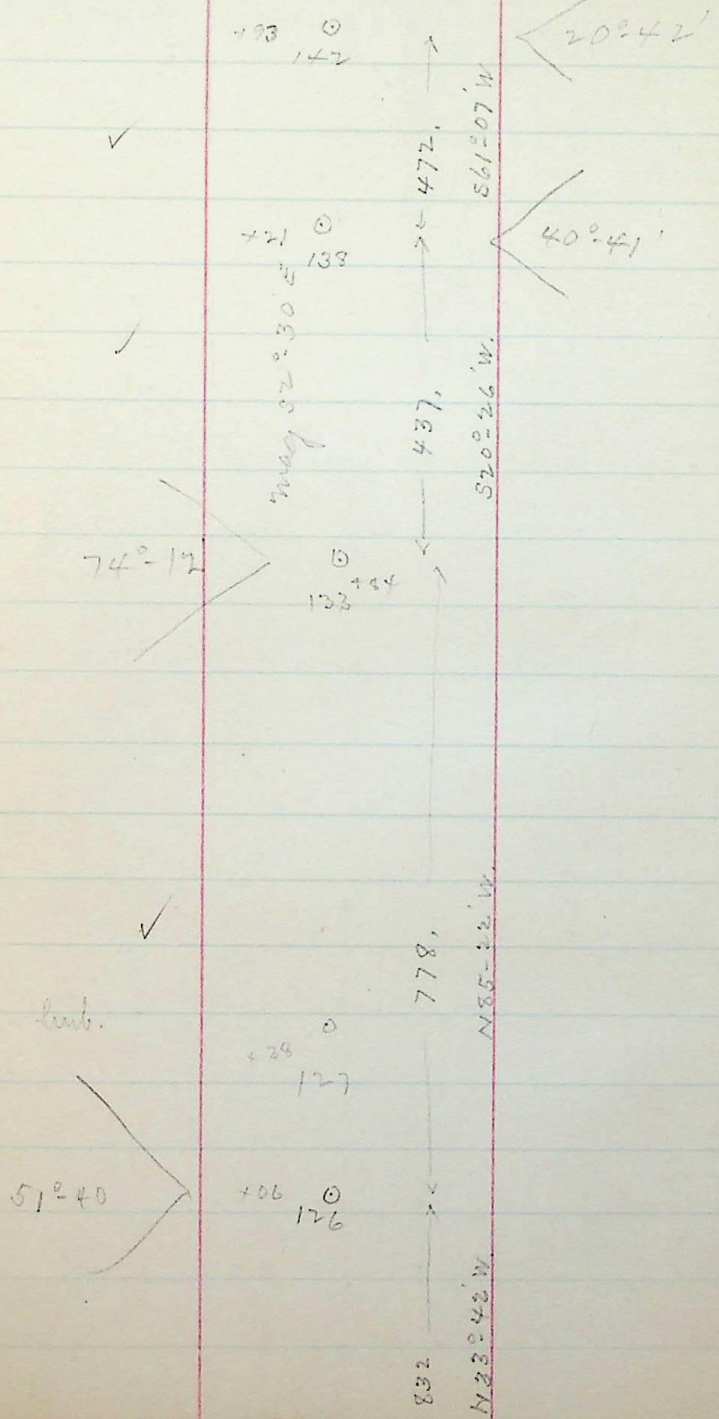 +93
142
20°-42'
472.
S61°-07'W
+21
138
40°-41'
mag S2°-30'E
437.
S20°-26'W.
74°-12
+84
133
778.
N85-22'W.
+28
127
51°-40
+06
126
832
N33°-42'W